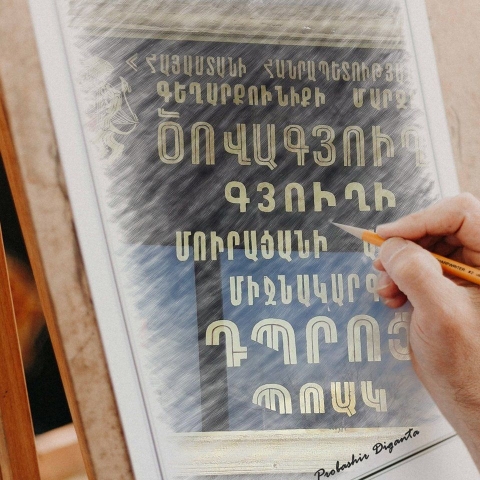 « ՀԱՅԱՍՏԱՆԻ ՀԱՆՐԱՊԵՏՈՒԹՅԱ
ԳԵՂԱՐՔՈՒՆԻՔԻ ՄԱՐԶ
ԾՈՎԱԳՅՈՒՂ
ԳՅՈՒՂԻ
ՄՈՒՐԱՑԱՆԻ
ՄԻՋՆԱԿԱՐԳ
ԴՊՐՈՑ
ՊՈԱԿ
Probashir Diganta